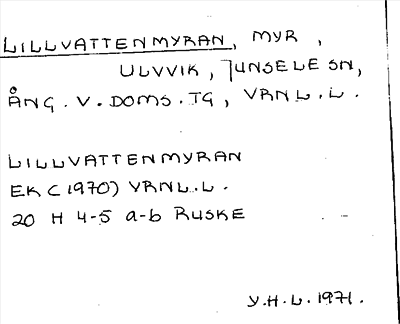 LILLVATTENMYRAN, MYR,
ULVVIK, JUNSELE SN,
ÅNG. V. DOMS. TG, VRNL.L.
LILLVATTENMYRAN
EK (1970) VRNL.L.
20 H 4-5 a-b RUSKE
Y.H.L. 1971.